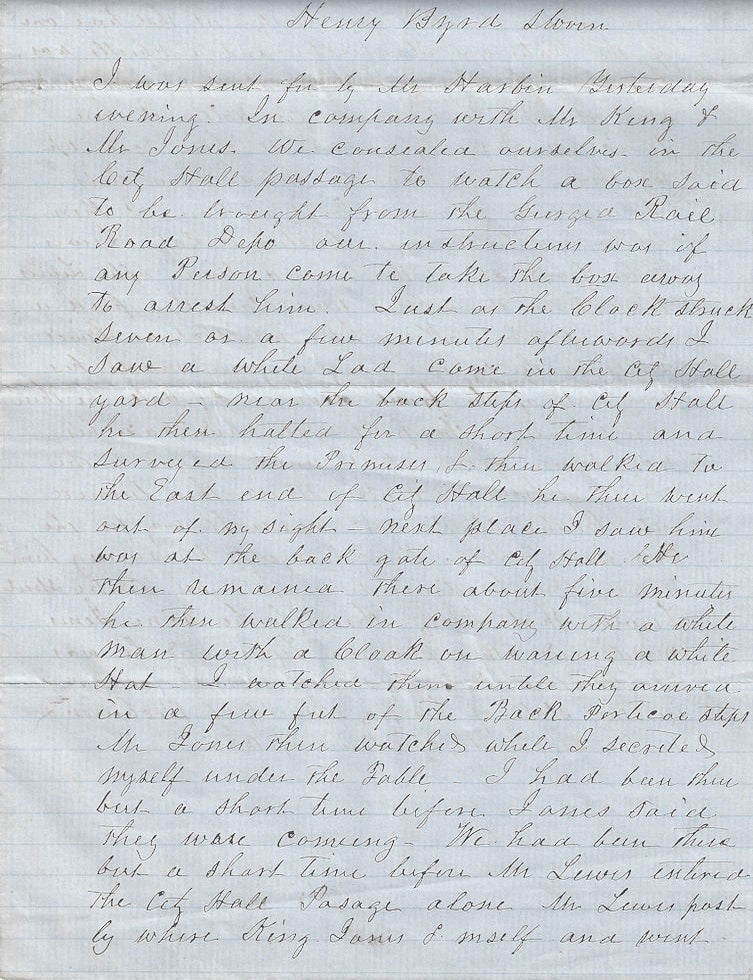 Henry Byrd Sworn
I was sent for by Mr Harbin Yesterday
evening. In company with Mr King &
Mr Jones. We consealed ourselves in the
City Hall passage to watch a box said
to be brought from the Georgia Rail
Road Depo our instructions was if
any Person come to take the box away
to arrest him. Just as the Clock struck
seven or a few minutes afterwords I
saw a white Lad come in the City Hall
yard - near the back steps of City Hall
he then halted for a short time and
surveyed the Premises, & then walked to
the East end of City Hall he then went
out of my sight - next place I saw him
was at the back gate of City Hall He
then remained there about five minutes
he then walked in company with a white
man with a Cloak on waring a white
Hat - I watched them untile they arrived
in a few feet of the Back Porticoe steps
Mr Jones then watched while I secreted
myself under the Table - I had been there
but a short time before Jones said
they ware comeing - We had been there
but a short time before Mr Lewis entered
the City Hall Pasage alone Mr Lewis past
by where King Jones & mself and went